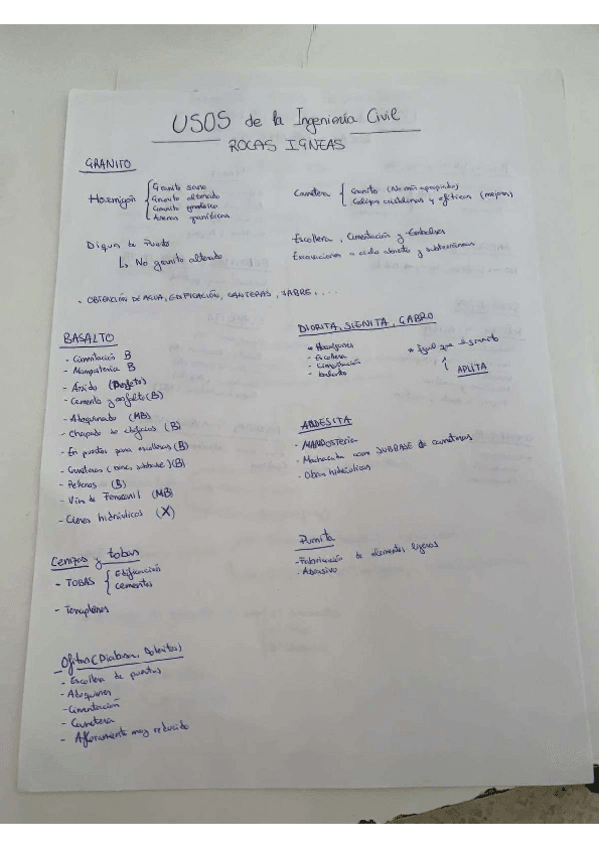 USOS de la Ingeniería Civil
ROCAS IGNEAS
GRANITO
Hormigón { Granito sano
Granito alterado
Granito
Arenas graníticas
Dique de
↳ No granito alterado
Carretera { Granito (No más apropiados)
y ofíticas (mejores)
Escollera, Cimentación y Embalses
Excavaciones a cielo abierto y subterráneas
- OBTENCIÓN DE AGUA, EDIFICACIÓN, CANTERAS, JABRE, ...
BASALTO
- Cimentación B
- Mampostería B
- Árido (Perfecto)
- Cemento y asfalto (B)
- Adoquinado (MB)
- Chapado de edificios (B)
- En puertos para escolleras (B)
- Carreteras (, subbase) (B)
- (B)
- Vías de Ferrocarril (MB)
- Cierres hidráulicos (X)
DIORITA, SIENITA, GABRO
* Hormigones
* Escollera
* Cimentación
* igual que el granito
APLITA
ANDESITA
- MAMPOSTERIA
- Machaqueo como SUBBASE de carreteras
- Obras hidráulicas
Cenizas y tobas
- TOBAS { Edificación
cementos
- Terraplenes
Pumita
- Fabricación de elementos ligeros
- Abrasivo
Ofitas (Diabasas, Doleritas)
- Escollera de puertos
- Adoquines
- Cimentación
- Carretera
- Afloramiento muy reducido